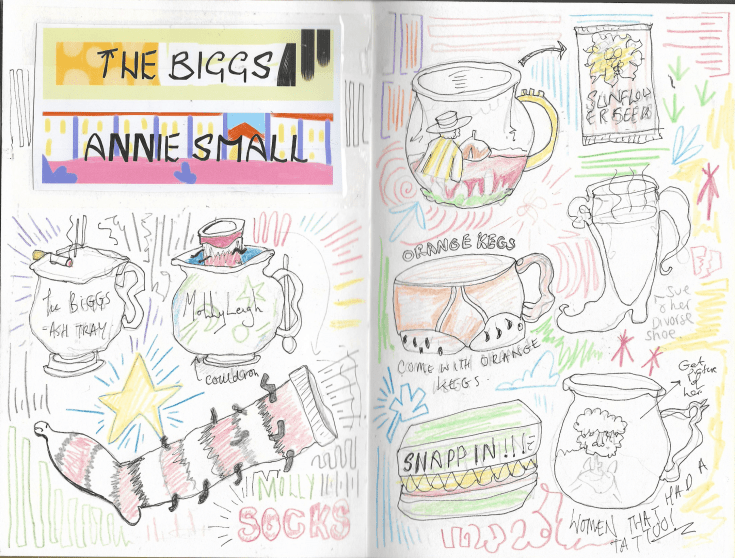 THE BIGGS
ANNIE SMALL
The BiGGS
ASH TRAY
Molly Leigh
Couldron
MOLLY
SOCKS
SUNFLOW
ER SEEDS
ORANGE KEGS
COME WITH ORANGE
KEGS
Sue
& her
Divorse
shoe
Get
of
her
SNAPPIN!!!
WOMEN THAT HAD A
TATTOO!